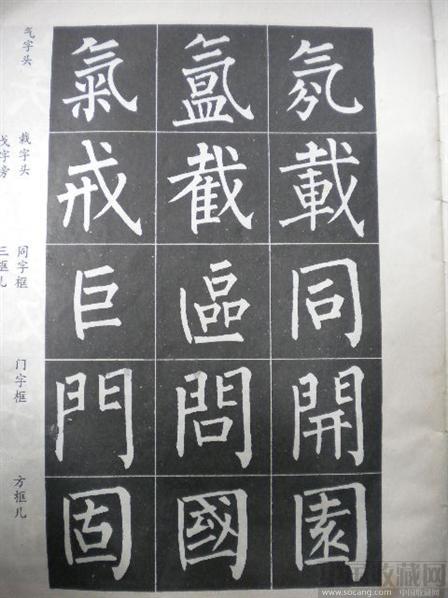 氛氳氣
載截戒
同區巨
開問門
園國固
气字头
栽字头
戈字旁
同字框
三框儿
门字框
方框儿
收藏网
www.socang.com 中国收藏网